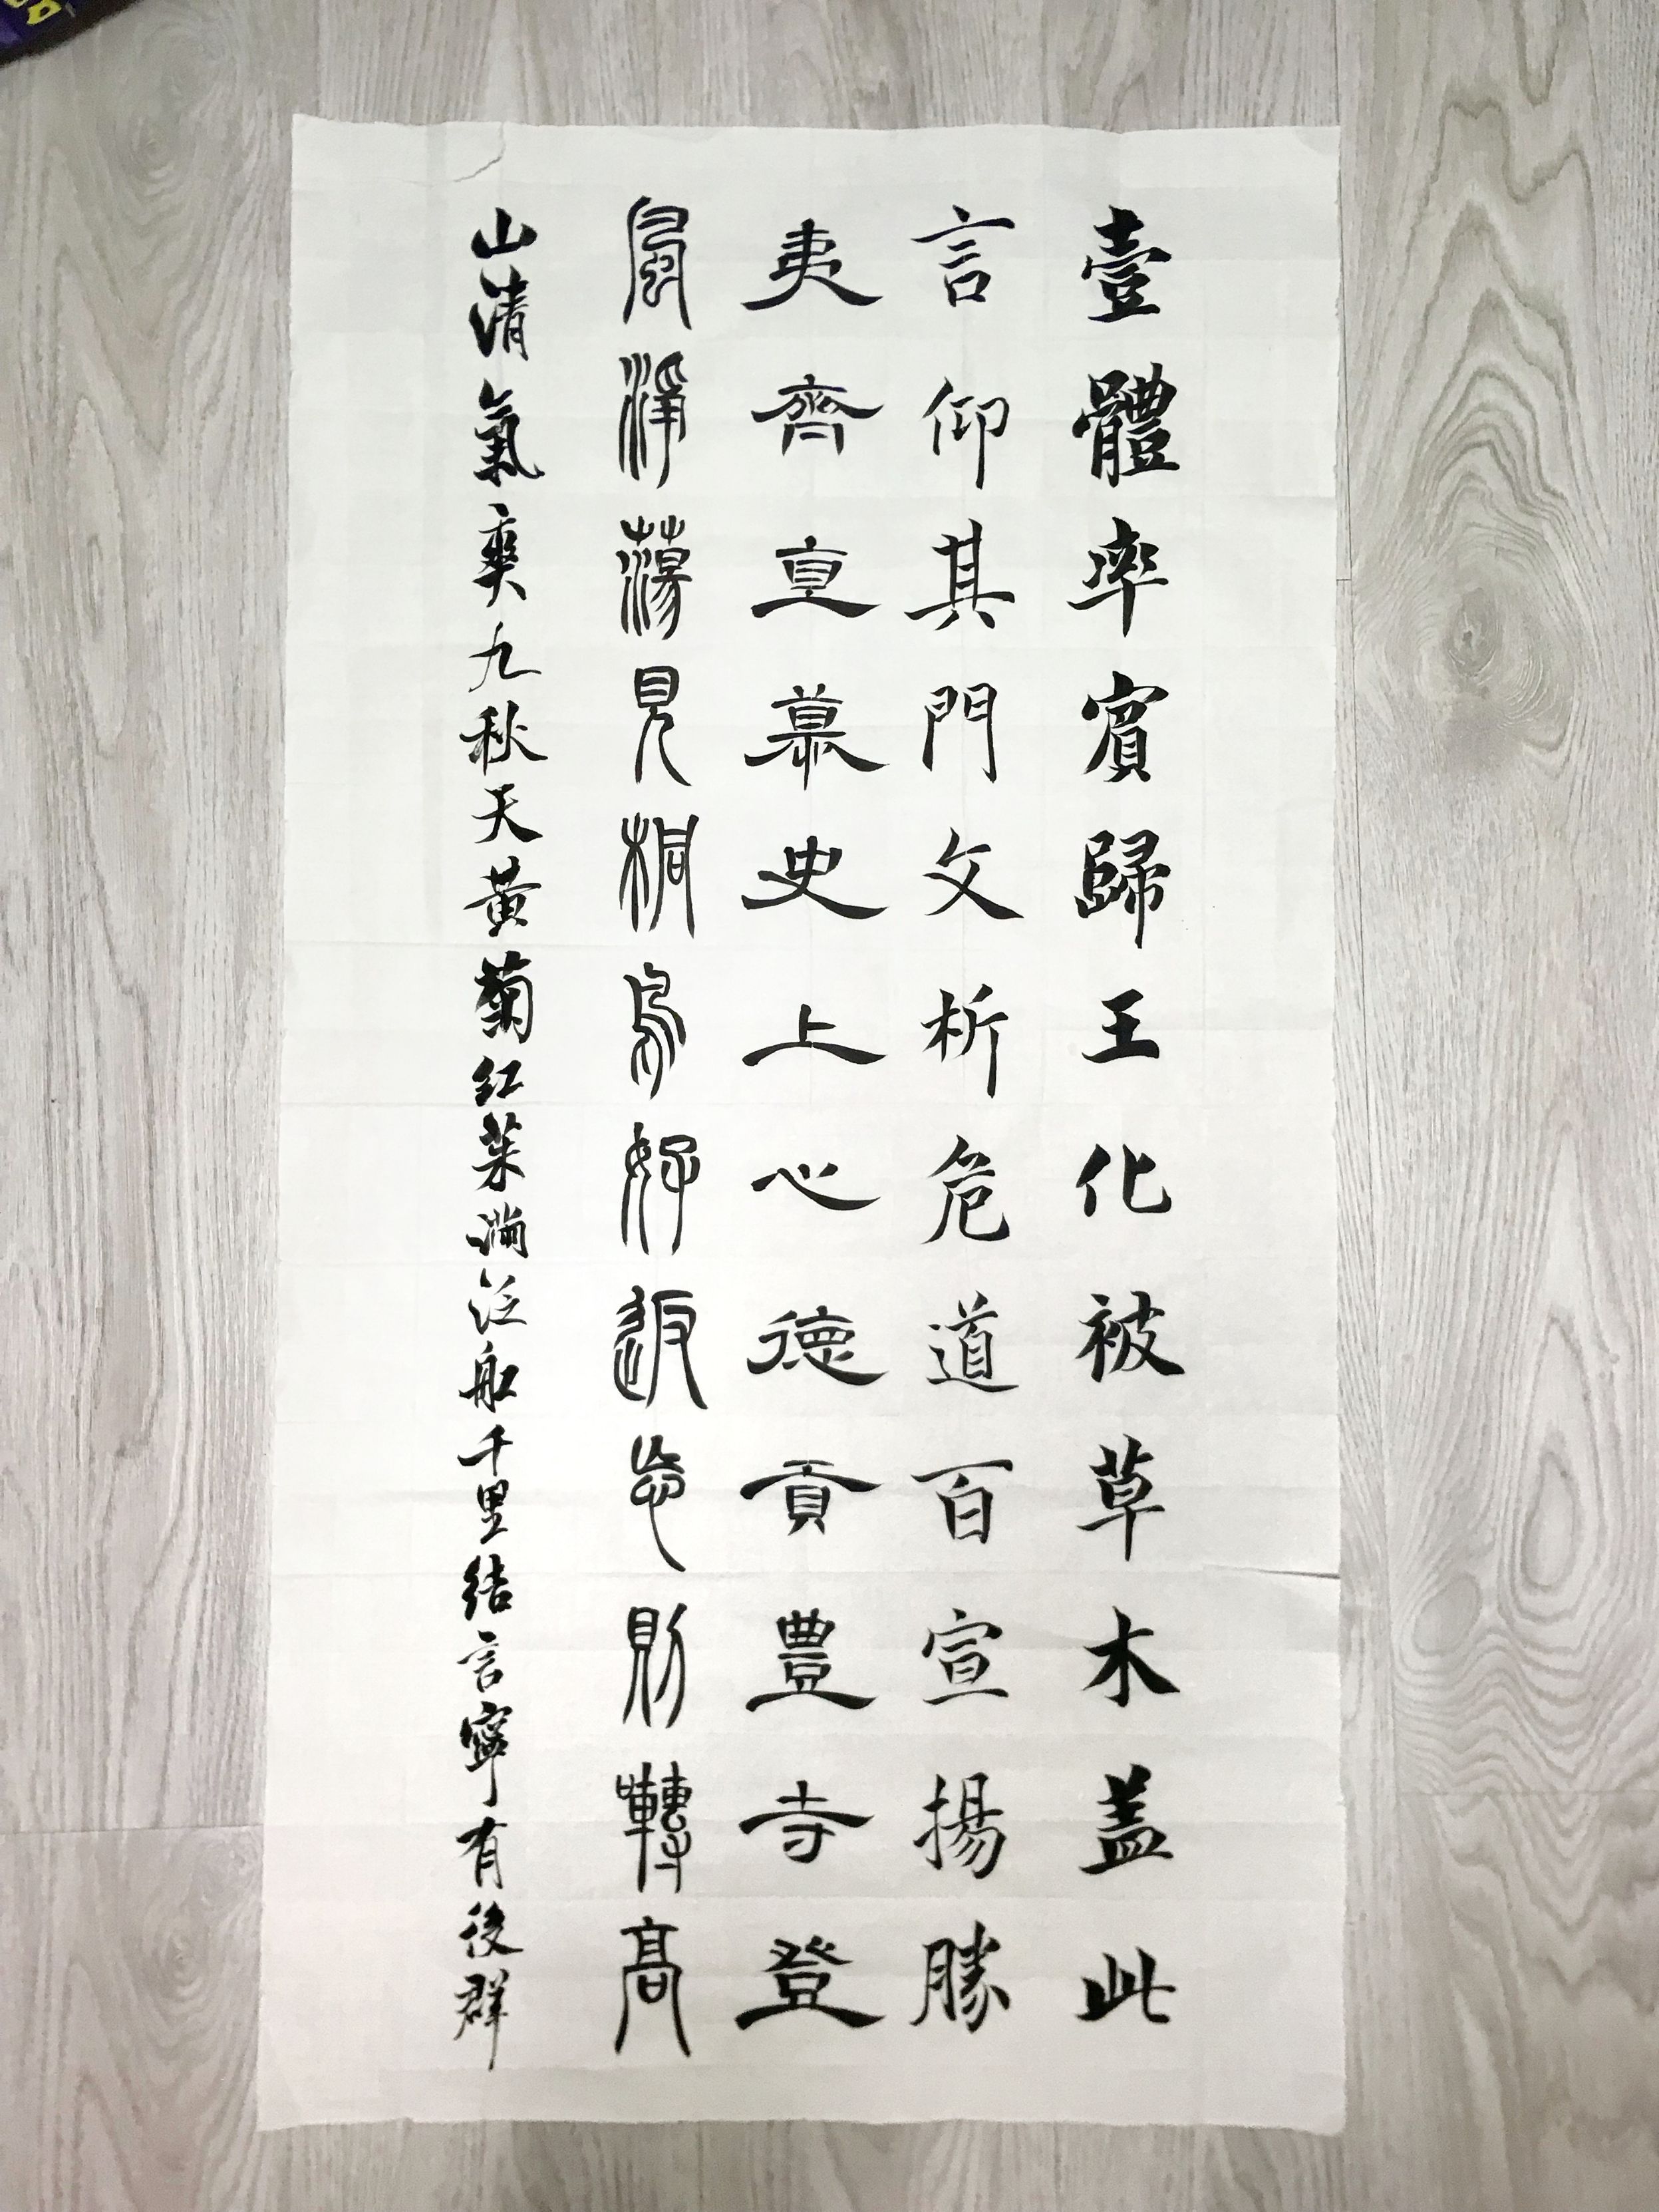 壹體率賓歸王化被草木蓋此
言仰其門文析危道百宣揚勝
夷齊亶慕史上心德貢豊寺登
風淨蕩見桐鳥好返忘則轉高
山清氣爽九秋天黃菊紅茱滿泛船千里結言寧有後群